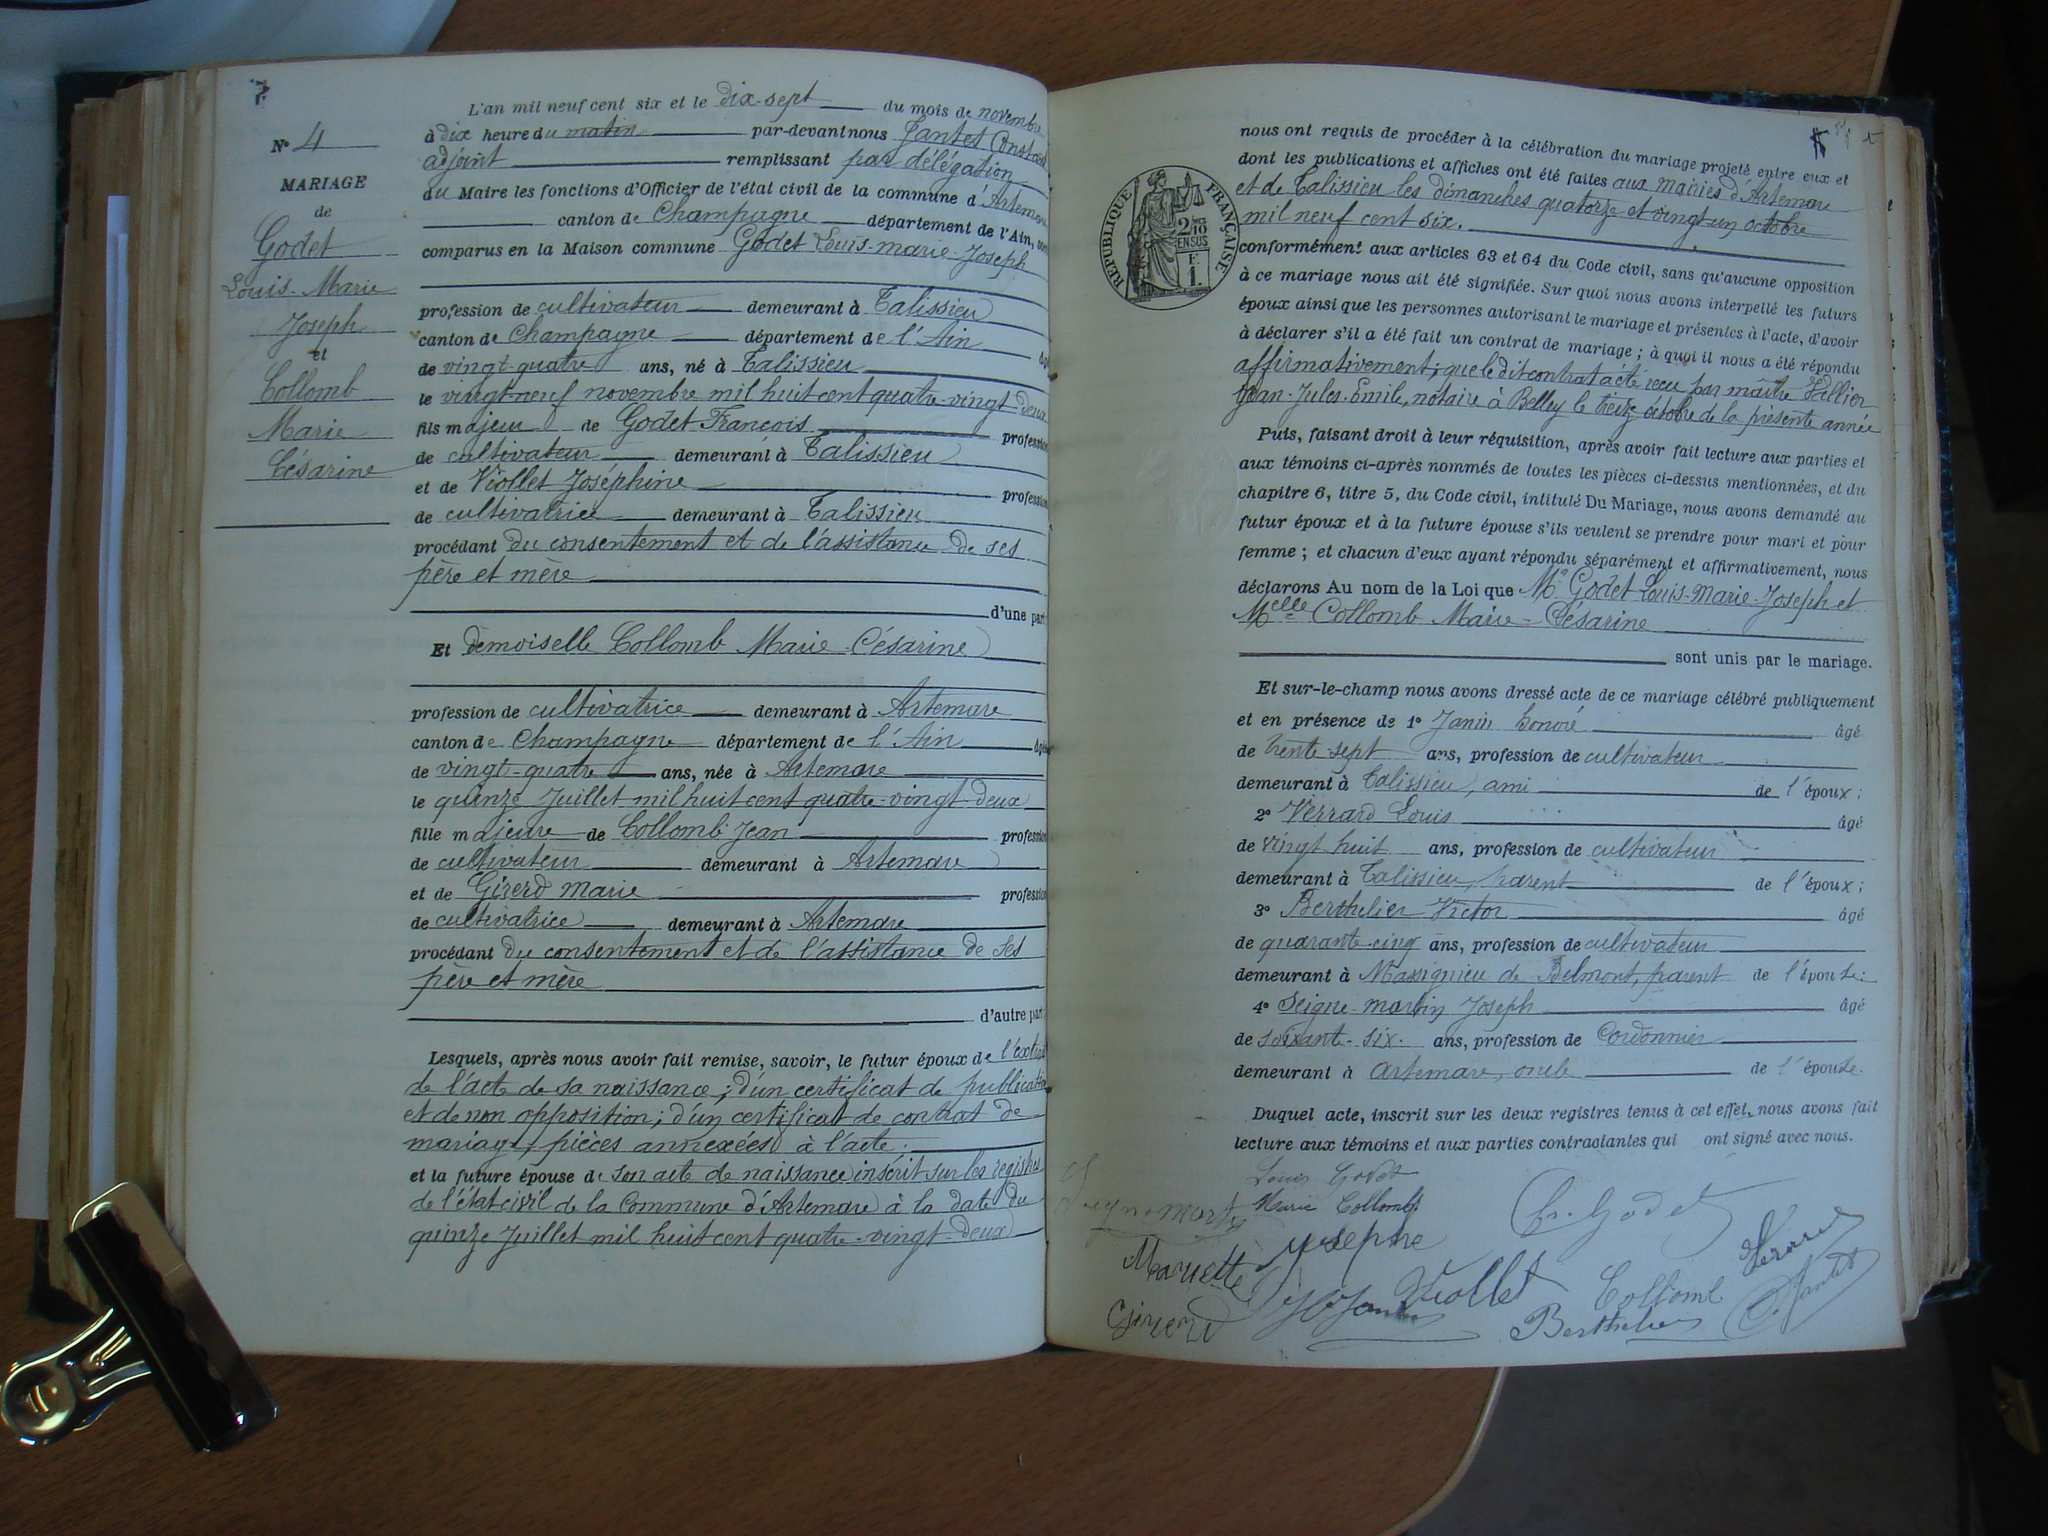 N° 4
MARIAGE
de
Godet
Louis-Marie
Joseph
et
Collomb
Marie
Césarine
L'an mil neuf cent six et le dix-sept du mois de novembre
à dix heure du matin par-devant nous Jantet
adjoint remplissant par délégation
du Maire les fonctions d'Officier de l'état civil de la commune d'Artemare
canton de Champagne département de l'Ain,
comparus en la Maison commune Godet Louis-marie-Joseph
profession de cultivateur demeurant à Talissieu
canton de Champagne département de l'Ain âgé
de vingt-quatre ans, né à Talissieu
le vingt-neuf novembre mil huit cent quatre-vingt-deux
fils majeur de Godet François profession
de cultivateur demeurant à Talissieu
et de Viollet Joséphine profession
de cultivatrice demeurant à Talissieu
procédant du consentement et de l'assistance de ses
père et mère
d'une part
Et demoiselle Collomb Marie-Césarine
profession de cultivatrice demeurant à Artemare
canton de Champagne département de l'Ain âgée
de vingt-quatre ans, née à Artemare
le quinze Juillet mil huit cent quatre-vingt-deux
fille majeure de Collomb Jean profession
de cultivateur demeurant à Artemare
et de Girerd marie profession
de cultivatrice demeurant à Artemare
procédant du consentement et de l'assistance de ses
père et mère
d'autre part
Lesquels, après nous avoir fait remise, savoir, le futur époux de l'extrait
de l'acte de sa naissance; d'un certificat de publication
et de non opposition; d'un certificat de contrat de
mariage, pièces annexées à l'acte.
et la future épouse de son acte de naissance inscrit sur les registres
de l'état civil de la Commune d'Artemare à la date du
quinze Juillet mil huit cent quatre-vingt-deux
RÉPUBLIQUE FRANÇAISE
2/10
EN SUS
F.
1.
nous ont requis de procéder à la célébration du mariage projeté entre eux et
dont les publications et affiches ont été faites aux mairies d'Artemare
et de Talissieu les dimanches quatorze et vingt-un octobre
mil neuf cent six.
conformément aux articles 63 et 64 du Code civil, sans qu'aucune opposition
à ce mariage nous ait été signifiée. Sur quoi nous avons interpellé les futurs
époux ainsi que les personnes autorisant le mariage et présentes à l'acte, d'avoir
à déclarer s'il a été fait un contrat de mariage ; à quoi il nous a été répondu
affirmativement; que le dit contrat a été reçu par maître
Jean-Jules-Emile, notaire à Belley le treize octobre de la présente année
Puis, faisant droit à leur réquisition, après avoir fait lecture aux parties et
aux témoins ci-après nommés de toutes les pièces ci-dessus mentionnées, et du
chapitre 6, titre 5, du Code civil, intitulé Du Mariage, nous avons demandé au
futur époux et à la future épouse s'ils veulent se prendre pour mari et pour
femme ; et chacun d'eux ayant répondu séparément et affirmativement, nous
déclarons Au nom de la Loi que Mr Godet Louis-Marie-Joseph et
Melle Collomb Marie-Césarine
sont unis par le mariage.
Et sur-le-champ nous avons dressé acte de ce mariage célébré publiquement
et en présence de 1° Janin honoré âgé
de trente-sept ans, profession de cultivateur
demeurant à Talissieu, ami de l'époux;
2° Verrard Louis âgé
de vingt huit ans, profession de cultivateur
demeurant à Talissieu, parent de l'époux;
3° Berthelier Victor âgé
de quarante-cinq ans, profession de cultivateur
demeurant à Massignieu de Belmont, parent de l'épouse;
4° Seigne-martin Joseph âgé
de soixante-six ans, profession de Cordonnier
demeurant à Artemare, oncle de l'épouse.
Duquel acte, inscrit sur les deux registres tenus à cet effet, nous avons fait
lecture aux témoins et aux parties contractantes qui ont signé avec nous.
Louis Godet
Marie Collomb
Fr. Godet
Mariette Girerd
Josephe Viollet
Collomb
Berthelier
Jantet